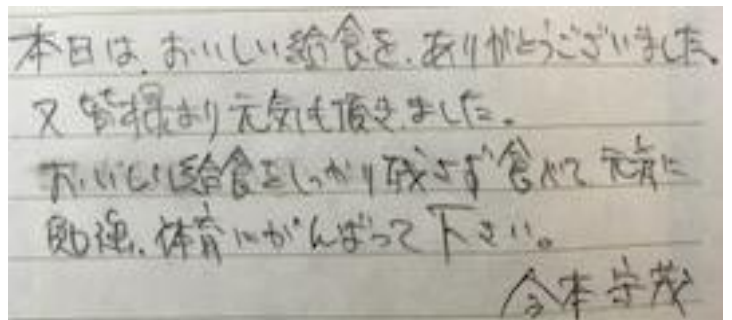 本日は、おいしい給食を、ありがとうございました。
又皆様より元気も頂きました。
おいしい給食をしっかり残さず食べて元気に
勉強、体育にがんばって下さい。
今本守茂